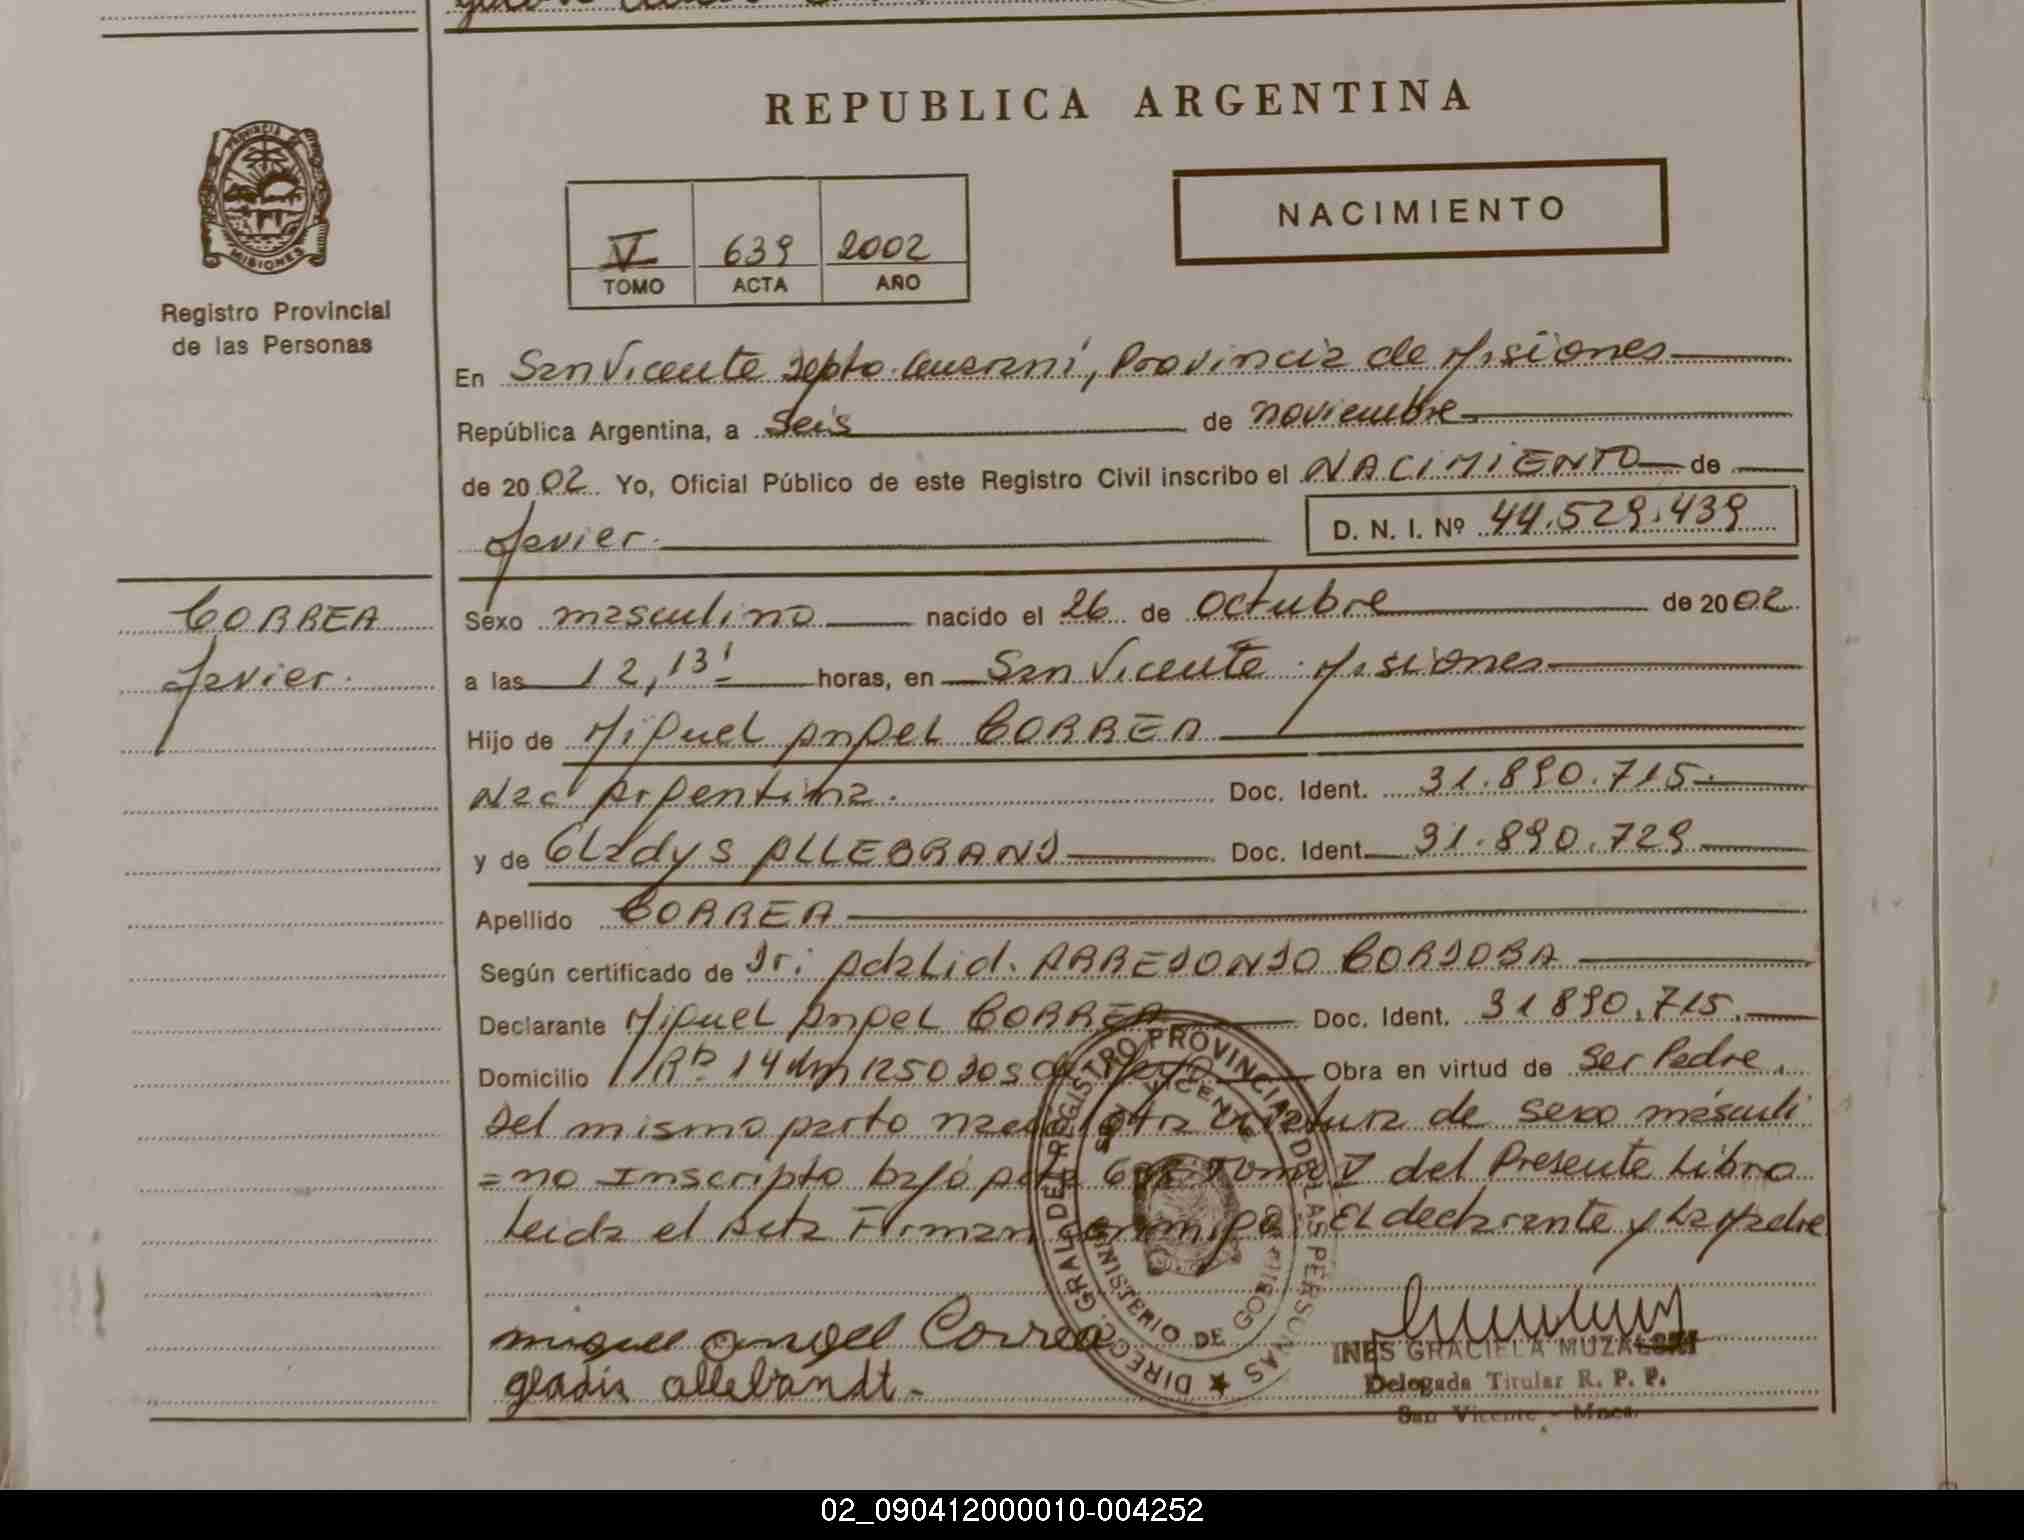 PROVINCIA DE
MISIONES
Registro Provincial
de las Personas
REPUBLICA ARGENTINA
NACIMIENTO
V 639 2002
TOMO ACTA AÑO
En San Vicente Depto. Guaraní, Provincia de Misiones
República Argentina, a Seis de noviembre
de 2002. Yo, Oficial Público de este Registro Civil inscribo el NACIMIENTO de
Javier. D. N. I. Nº 44.529.439
CORREA
Javier.
Sexo masculino nacido el 26 de Octubre de 2002
a las 12,13' horas, en San Vicente Misiones
Hijo de Miguel Angel CORREA
Nac Argentina. Doc. Ident. 31.890.715.
y de Gladys ALLEBRAND Doc. Ident. 31.890.729
Apellido CORREA
Según certificado de Dr: Adalid. ARREDONDO CORDOBA
Declarante Miguel Angel CORREA Doc. Ident. 31890.715.
Domicilio 14 Km 1250 Obra en virtud de Ser Padre.
Del mismo parto criatura de sexo masculi
=no Inscripto bajo acta Tomo V del Presente Libro
Leida el Acta Firman conmigo: El declarante y La Madre
miguel angel Correa
gladis allebandt.
DIRECC. GRAL. DEL REGISTRO PROVINCIAL DE LAS PERSONAS
SAN VICENTE
MINISTERIO DE GOBIERNO
INES GRACIELA
Delegada Titular R. P. P.
San Vicente - Mnes.
02_090412000010-004252